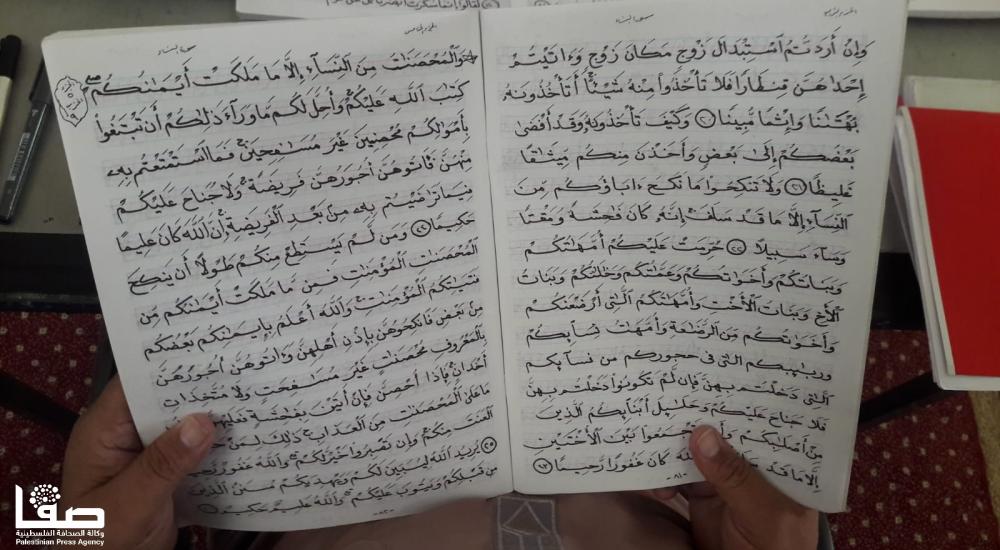 سورة النساء
وَإِنْ أَرَدتُّمُ ٱسْتِبْدَالَ زَوْجٍ مَّكَانَ زَوْجٍ وَءَاتَيْتُمْ
إِحْدَىٰهُنَّ قِنطَارًا فَلَا تَأْخُذُوا۟ مِنْهُ شَيْـًٔا أَتَأْخُذُونَهُۥ
بُهْتَٰنًا وَإِثْمًا مُّبِينًا ٢٠ وَكَيْفَ تَأْخُذُونَهُۥ وَقَدْ أَفْضَىٰ
بَعْضُكُمْ إِلَىٰ بَعْضٍ وَأَخَذْنَ مِنكُم مِّيثَٰقًا
غَلِيظًا ٢١ وَلَا تَنكِحُوا۟ مَا نَكَحَ ءَابَآؤُكُم مِّنَ
ٱلنِّسَآءِ إِلَّا مَا قَدْ سَلَفَ إِنَّهُۥ كَانَ فَٰحِشَةً وَمَقْتًا
وَسَآءَ سَبِيلًا ٢٢ حُرِّمَتْ عَلَيْكُمْ أُمَّهَٰتُكُمْ
وَبَنَاتُكُمْ وَأَخَوَٰتُكُمْ وَعَمَّٰتُكُمْ وَخَٰلَٰتُكُمْ وَبَنَاتُ
ٱلْأَخِ وَبَنَاتُ ٱلْأُخْتِ وَأُمَّهَٰتُكُمُ ٱلَّٰتِىٓ أَرْضَعْنَكُمْ
وَأَخَوَٰتُكُم مِّنَ ٱلرَّضَٰعَةِ وَأُمَّهَٰتُ نِسَآئِكُمْ
وَرَبَٰٓئِبُكُمُ ٱلَّٰتِى فِى حُجُورِكُم مِّن نِّسَآئِكُمُ
ٱلَّٰتِى دَخَلْتُم بِهِنَّ فَإِن لَّمْ تَكُونُوا۟ دَخَلْتُم بِهِنَّ
فَلَا جُنَاحَ عَلَيْكُمْ وَحَلَٰٓئِلُ أَبْنَآئِكُمُ ٱلَّذِينَ
مِنْ أَصْلَٰبِكُمْ وَأَن تَجْمَعُوا۟ بَيْنَ ٱلْأُخْتَيْنِ
إِلَّا مَا قَدْ ٱللَّهَ كَانَ غَفُورًا رَّحِيمًا ٢٣
٨١
سورة النساء
وَٱلْمُحْصَنَٰتُ مِنَ ٱلنِّسَآءِ إِلَّا مَا مَلَكَتْ أَيْمَٰنُكُمْ
كِتَٰبَ ٱللَّهِ عَلَيْكُمْ وَأُحِلَّ لَكُم مَّا وَرَآءَ ذَٰلِكُمْ أَن تَبْتَغُوا۟
بِأَمْوَٰلِكُم مُّحْصِنِينَ غَيْرَ مُسَٰفِحِينَ فَمَا ٱسْتَمْتَعْتُم بِهِۦ
مِنْهُنَّ فَـَٔاتُوهُنَّ أُجُورَهُنَّ فَرِيضَةً وَلَا جُنَاحَ عَلَيْكُمْ
فِيمَا تَرَٰضَيْتُم بِهِۦ مِنۢ بَعْدِ ٱلْفَرِيضَةِ إِنَّ ٱللَّهَ كَانَ عَلِيمًا
حَكِيمًا ٢٤ وَمَن لَّمْ يَسْتَطِعْ مِنكُمْ طَوْلًا أَن يَنكِحَ
ٱلْمُحْصَنَٰتِ ٱلْمُؤْمِنَٰتِ فَمِن مَّا مَلَكَتْ أَيْمَٰنُكُم مِّن
فَتَيَٰتِكُمُ ٱلْمُؤْمِنَٰتِ وَٱللَّهُ أَعْلَمُ بِإِيمَٰنِكُم بَعْضُكُم
مِّنۢ بَعْضٍ فَٱنكِحُوهُنَّ بِإِذْنِ أَهْلِهِنَّ وَءَاتُوهُنَّ أُجُورَهُنَّ
بِٱلْمَعْرُوفِ مُحْصَنَٰتٍ غَيْرَ مُسَٰفِحَٰتٍ وَلَا مُتَّخِذَٰتِ
أَخْدَانٍ فَإِذَآ أُحْصِنَّ فَإِنْ أَتَيْنَ بِفَٰحِشَةٍ فَعَلَيْهِنَّ
مَا عَلَى ٱلْمُحْصَنَٰتِ مِنَ ٱلْعَذَابِ ذَٰلِكَ لِمَنْ
ٱلْعَنَتَ مِنكُمْ وَأَن تَصْبِرُوا۟ خَيْرٌ لَّكُمْ وَٱللَّهُ غَفُورٌ رَّحِيمٌ
٢٥ يُرِيدُ ٱللَّهُ لِيُبَيِّنَ لَكُمْ وَيَهْدِيَكُمْ سُنَنَ ٱلَّذِينَ
مِن قَبْلِكُمْ وَيَتُوبَ عَلَيْكُمْ وَٱللَّهُ عَلِيمٌ حَكِيمٌ
٨٢
صفا
وكالة الصحافة الفلسطينية
Palestinian Press Agency